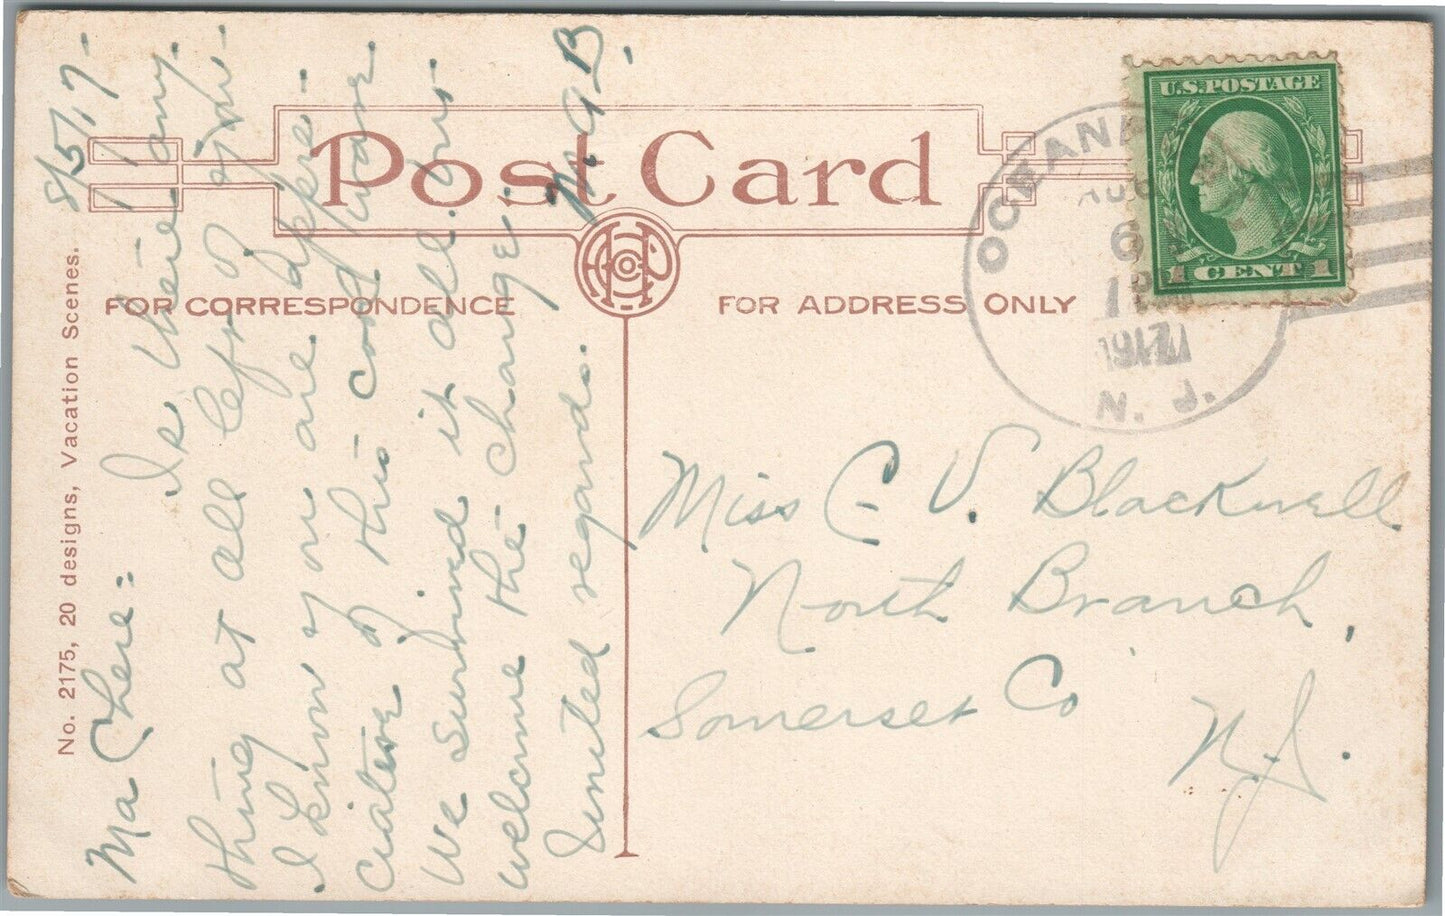 8/5/17-
Ma Chere:
Is there any-
thing at all left of you-
I know you are appre-
ciative of this cool wave
We survived it all. and
welcome the change.
United regards. M. A. B.
No. 2175, 20 designs, Vacation Scenes.
Post Card
FOR CORRESPONDENCE
FOR ADDRESS ONLY
U.S. POSTAGE
1 CENT 1
AUG
6
1917
N. J.
Miss C. V. Blackwell
North Branch,
Somerset Co
N. J.